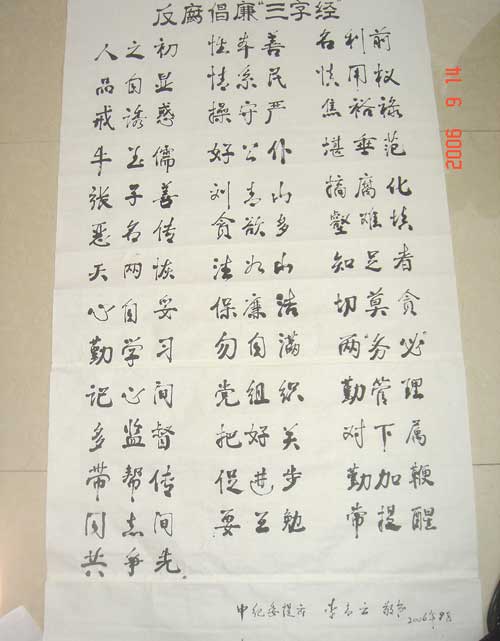 反腐倡廉"三字经"
人之初 性本善 名利前
品自显 情系民 慎用权
戒诱惑 操守严 焦裕禄
牛玉儒 好公仆 堪垂范
张子善 刘青山 搞腐化
恶名传 贪欲多 壑难填
天网恢 法如山 知足者
心自安 保廉洁 切莫贪
勤学习 勿自满 两"务必"
记心间 党组织 勤管理
多监督 把好关 对下属
带帮传 促进步 勤加鞭
同志间 要互勉 常提醒
共争先
中纪委 李 云 敬书 2006年9月
2006 9 14